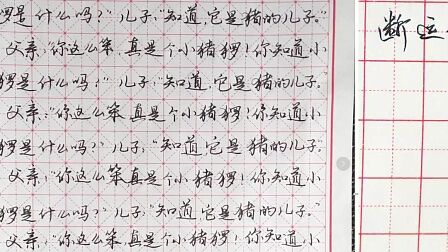 猡是什么吗?”儿子:“知道,它是猪的儿子。”
父亲:“你这么笨,真是个小猪猡!你知道小
猡是什么吗?”儿子:“知道,它是猪的儿子。
父亲:“你这么笨,真是个小猪猡!你知道小
猡是什么吗?”儿子:“知道,它是猪的儿子。
父亲:“你这么笨,真是个小猪猡!你知道小
猡是什么吗?”儿子:“知道,它是猪的儿子。”
父亲:“你这么笨,真是个小猪猡!你知道小
断